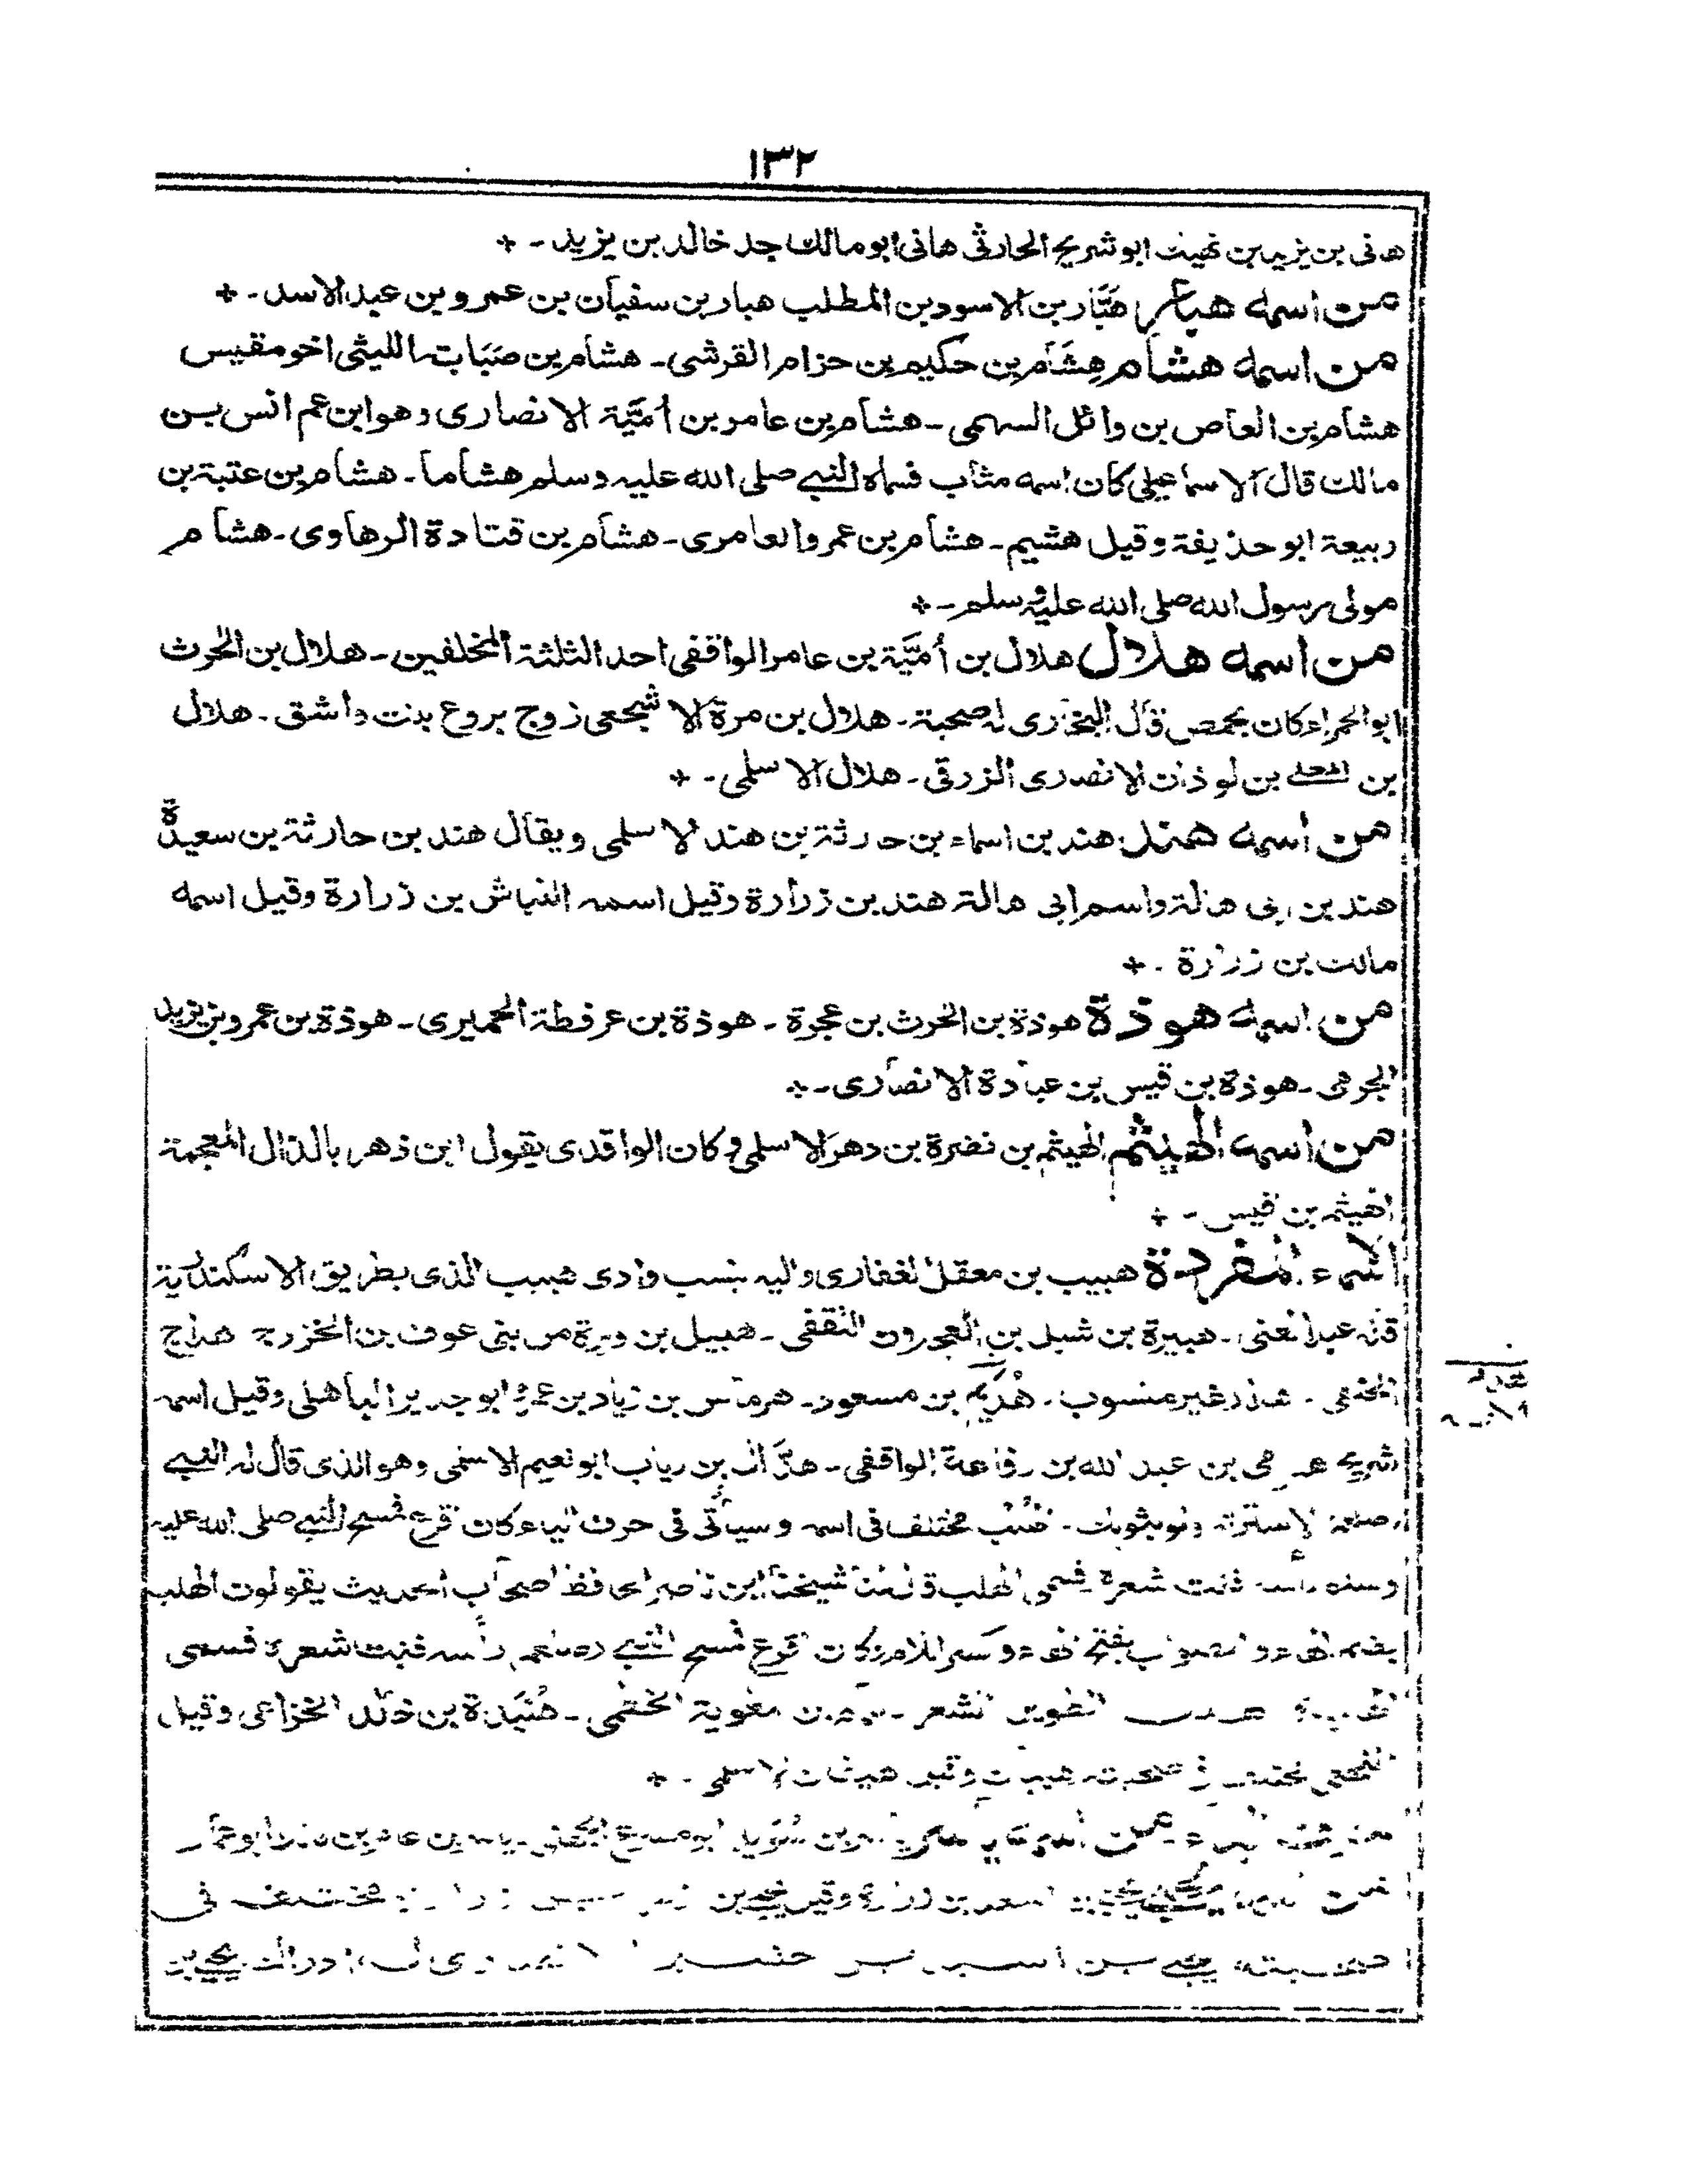 ١٣٢
هانى بن يزيد بن نهيك ابو شريح الحارثى هانى ابو مالك جد خالد بن يزيد ـ ٭
من اسمه هبار هَبَّار بن الاسود بن المطلب هبار بن سفيان بن عمرو بن عبد الاسد ـ ٭
من اسمه هشام هِشَام بن حكيم بن حزام القرشى ـ هشام بن صَبَابة الليثى اخو مقيس
هشام بن العاص بن وائل السهمى ـ هشام بن عامر بن أُمَيَّة الانصارى وهو ابن عم انس بن
مالك قال الاسماعيلى كان اسمه شهاب فسماه النبى صلى الله عليه وسلم هشاما ـ هشام بن عتبة بن
ربيعة ابو حذيفة وقيل هشيم ـ هشام بن عمرو العامرى ـ هشام بن قتادة الرهاوى ـ هشام
مولى رسول الله صلى الله عليه وسلم ـ ٭
من اسمه هلال هلال بن أُمَيَّة بن عامر الواقفى احد الثلثة المخلفين ـ هلال بن الحرث
ابو الحمراء كان بحمص قال البخارى له صحبة ـ هلال بن مرة الاشجعى زوج بروع بنت واشق ـ هلال
بن المعلى بن لوذان الانصارى الزرقى ـ هلال الاسلمى ـ ٭
من اسمه هند هند بن اسماء بن حارثة بن هند الاسلمى ويقال هند بن حارثة بن سعيدة
هند بن ابى هالة واسم ابى هالة هند بن زرارة وقيل اسمه النباش بن زرارة وقيل اسمه
مالك بن زرارة ـ ٭
من اسمه هوذة هوذة بن الحرث بن عجرة ـ هوذة بن عرفطة الحميرى ـ هوذة بن عمرو بن يزيد
الجرمى ـ هوذة بن قيس بن عبادة الانصارى ـ ٭
من اسمه الهيثم الهيثم بن نضرة بن دهر الاسلمى وكان الواقدى يقول ابن ذهر بالذال المعجمة
الهيثم بن قيس ـ ٭
الاسماء المفردة هبيب بن معقل الغفارى واليه ينسب وادى هبيب الذى بطريق الاسكندرية
قاله عبد الغنى ـ هبيرة بن شبل بن العجلان الثقفى ـ هبيل بن وبرة من بنى عوف بن الخزرج هداج
الحنفى ـ هدار غير منسوب ـ هُدَيْم بن مسعود ـ هرماس بن زياد بن عمرو ابو جدير الباهلى وقيل اسمه
شريح هرمى بن عبد الله بن رفاعة الواقفى ـ هزّال بن رياب ابو نعيم الاسلمى وهو الذى قال له النبى
صلعم لا سترته ولو بثوبك ـ هلب مختلف فى اسمه وسيأتى فى حرف الياء كان اقرع فمسح النبى صلى الله عليه
وسلم رأسه فنبت شعره فسمى الهلب قال لنا شيخنا ابن ناصر الحافظ اصحاب الحديث يقولون الهلب
بضم الهاء والصواب بفتح الهاء وكسر اللام وكان اقرع فمسح النبى صلعم رأسه فنبت شعره فسمى
الطويل الشعر ـ بن معوية الخثعمى ـ هُنَيْدة بن خالد الخزاعى وقيل
النخعى مختلف فى صحبته هيبان وقيل هيفان الاسلمى ـ ٭
بن سُوَيد ابو مسرع الجهنى ـ ياسر بن عامر بن مالك ابو عمار
اسعد بن زرارة وقيل يحيى بن مختلف فى
صحبته يحيى بن اسيد بن حضير الانصارى ادراك يحيى بن